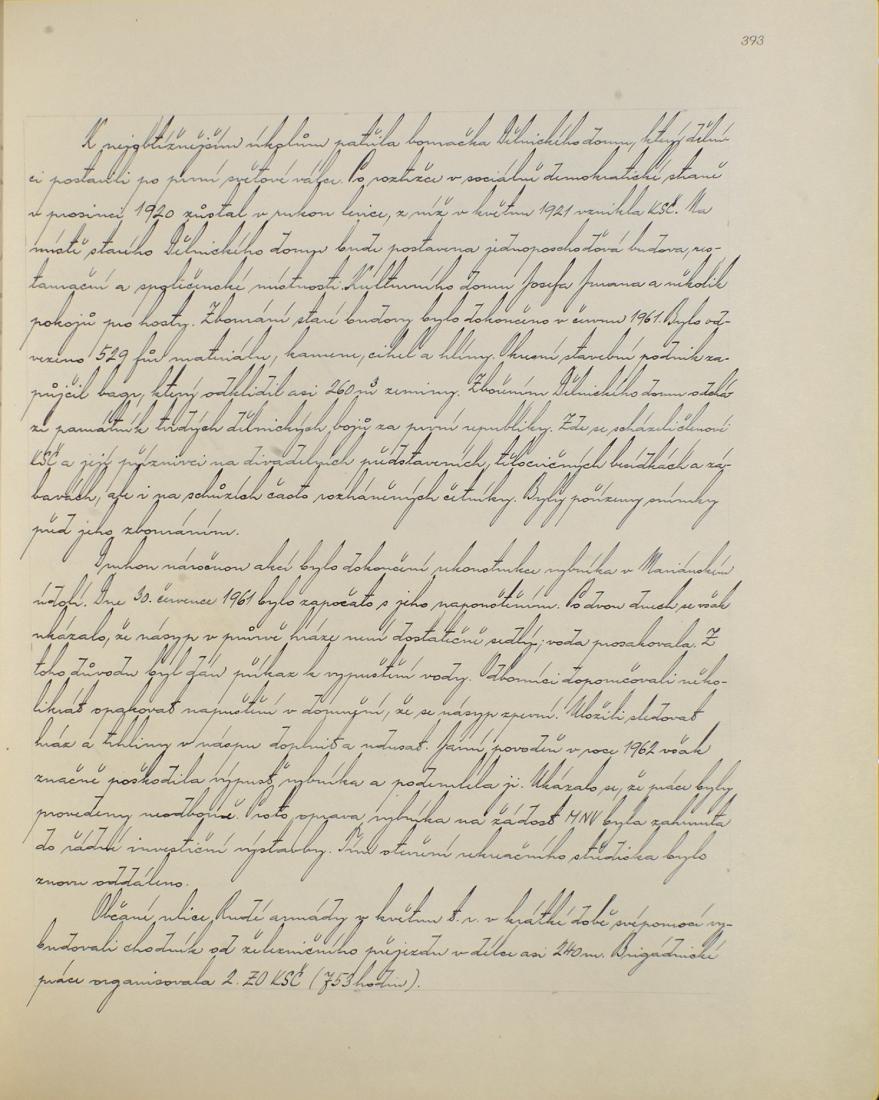 393
K nejbližnějším úkolům patřila bouračka Dělnického domu, který dělní-
ci postavili po první světové válce. Po roztržce v sociálně demokratické straně
v prosinci 1920 zůstal v rukou levice, z níž v květnu 1921 vznikla KSČ. Na
místě starého Dělnického domu bude postavena jednoposchoďová budova, res-
taurační a společenské místnosti Kulturního domu Josefa Jurana a několik
pokojů pro hosty. Zbourání staré budovy bylo dokončeno v červnu 1961. Bylo od-
vezeno 529 fůr materiálu, kamene, cihel a hlíny. Okresní stavební podnik za-
půjčil bagr, který odklidil asi 260 m³ zeminy. Zbořením Dělnického domu odchá-
zí památník tvrdých dělnických bojů za první republiky. Zde se scházeli členové
KSČ a její příznivci na divadelních představeních, tělocvičných besídkách a zá-
bavách, ale i na schůzích často rozháněných četníky. Byly pořízeny snímky
před jeho zbouráním.
Druhou náročnou akcí bylo dokončení rekonstrukce rybníka v Mariánském
údolí. Dne 30. července 1961 bylo započato s jeho napouštěním. Po dvou dnech se však
ukázalo, že násyp v průrvě hráze není dostatečně sedlý; voda prosakovala. Z
toho důvodu byl dán příkaz k vypuštění vody. Odborníci doporučovali něko-
likrát opakovat napuštění v domnění, že se násyp zpevní. Uložili sledovat
hráz a trhliny v náspu doplnit a udusat. Jarní povodeň v roce 1962 však
značně poškodila výpusť rybníka a podemlela ji. Ukázalo se, že práce byly
provedeny neodborně. Proto oprava rybníka na žádost MNV byla zahrnuta
do řádné investiční výstavby. Tím otevření rekreačního střediska bylo
znovu oddáleno.
Občané ulice Rudé armády v květnu t. r. v krátké době svépomocí vy-
budovali chodník od železničního přejezdu v délce asi 240 m. Brigádnické
práce organisovala 2. ZO KSČ (753 hodin).